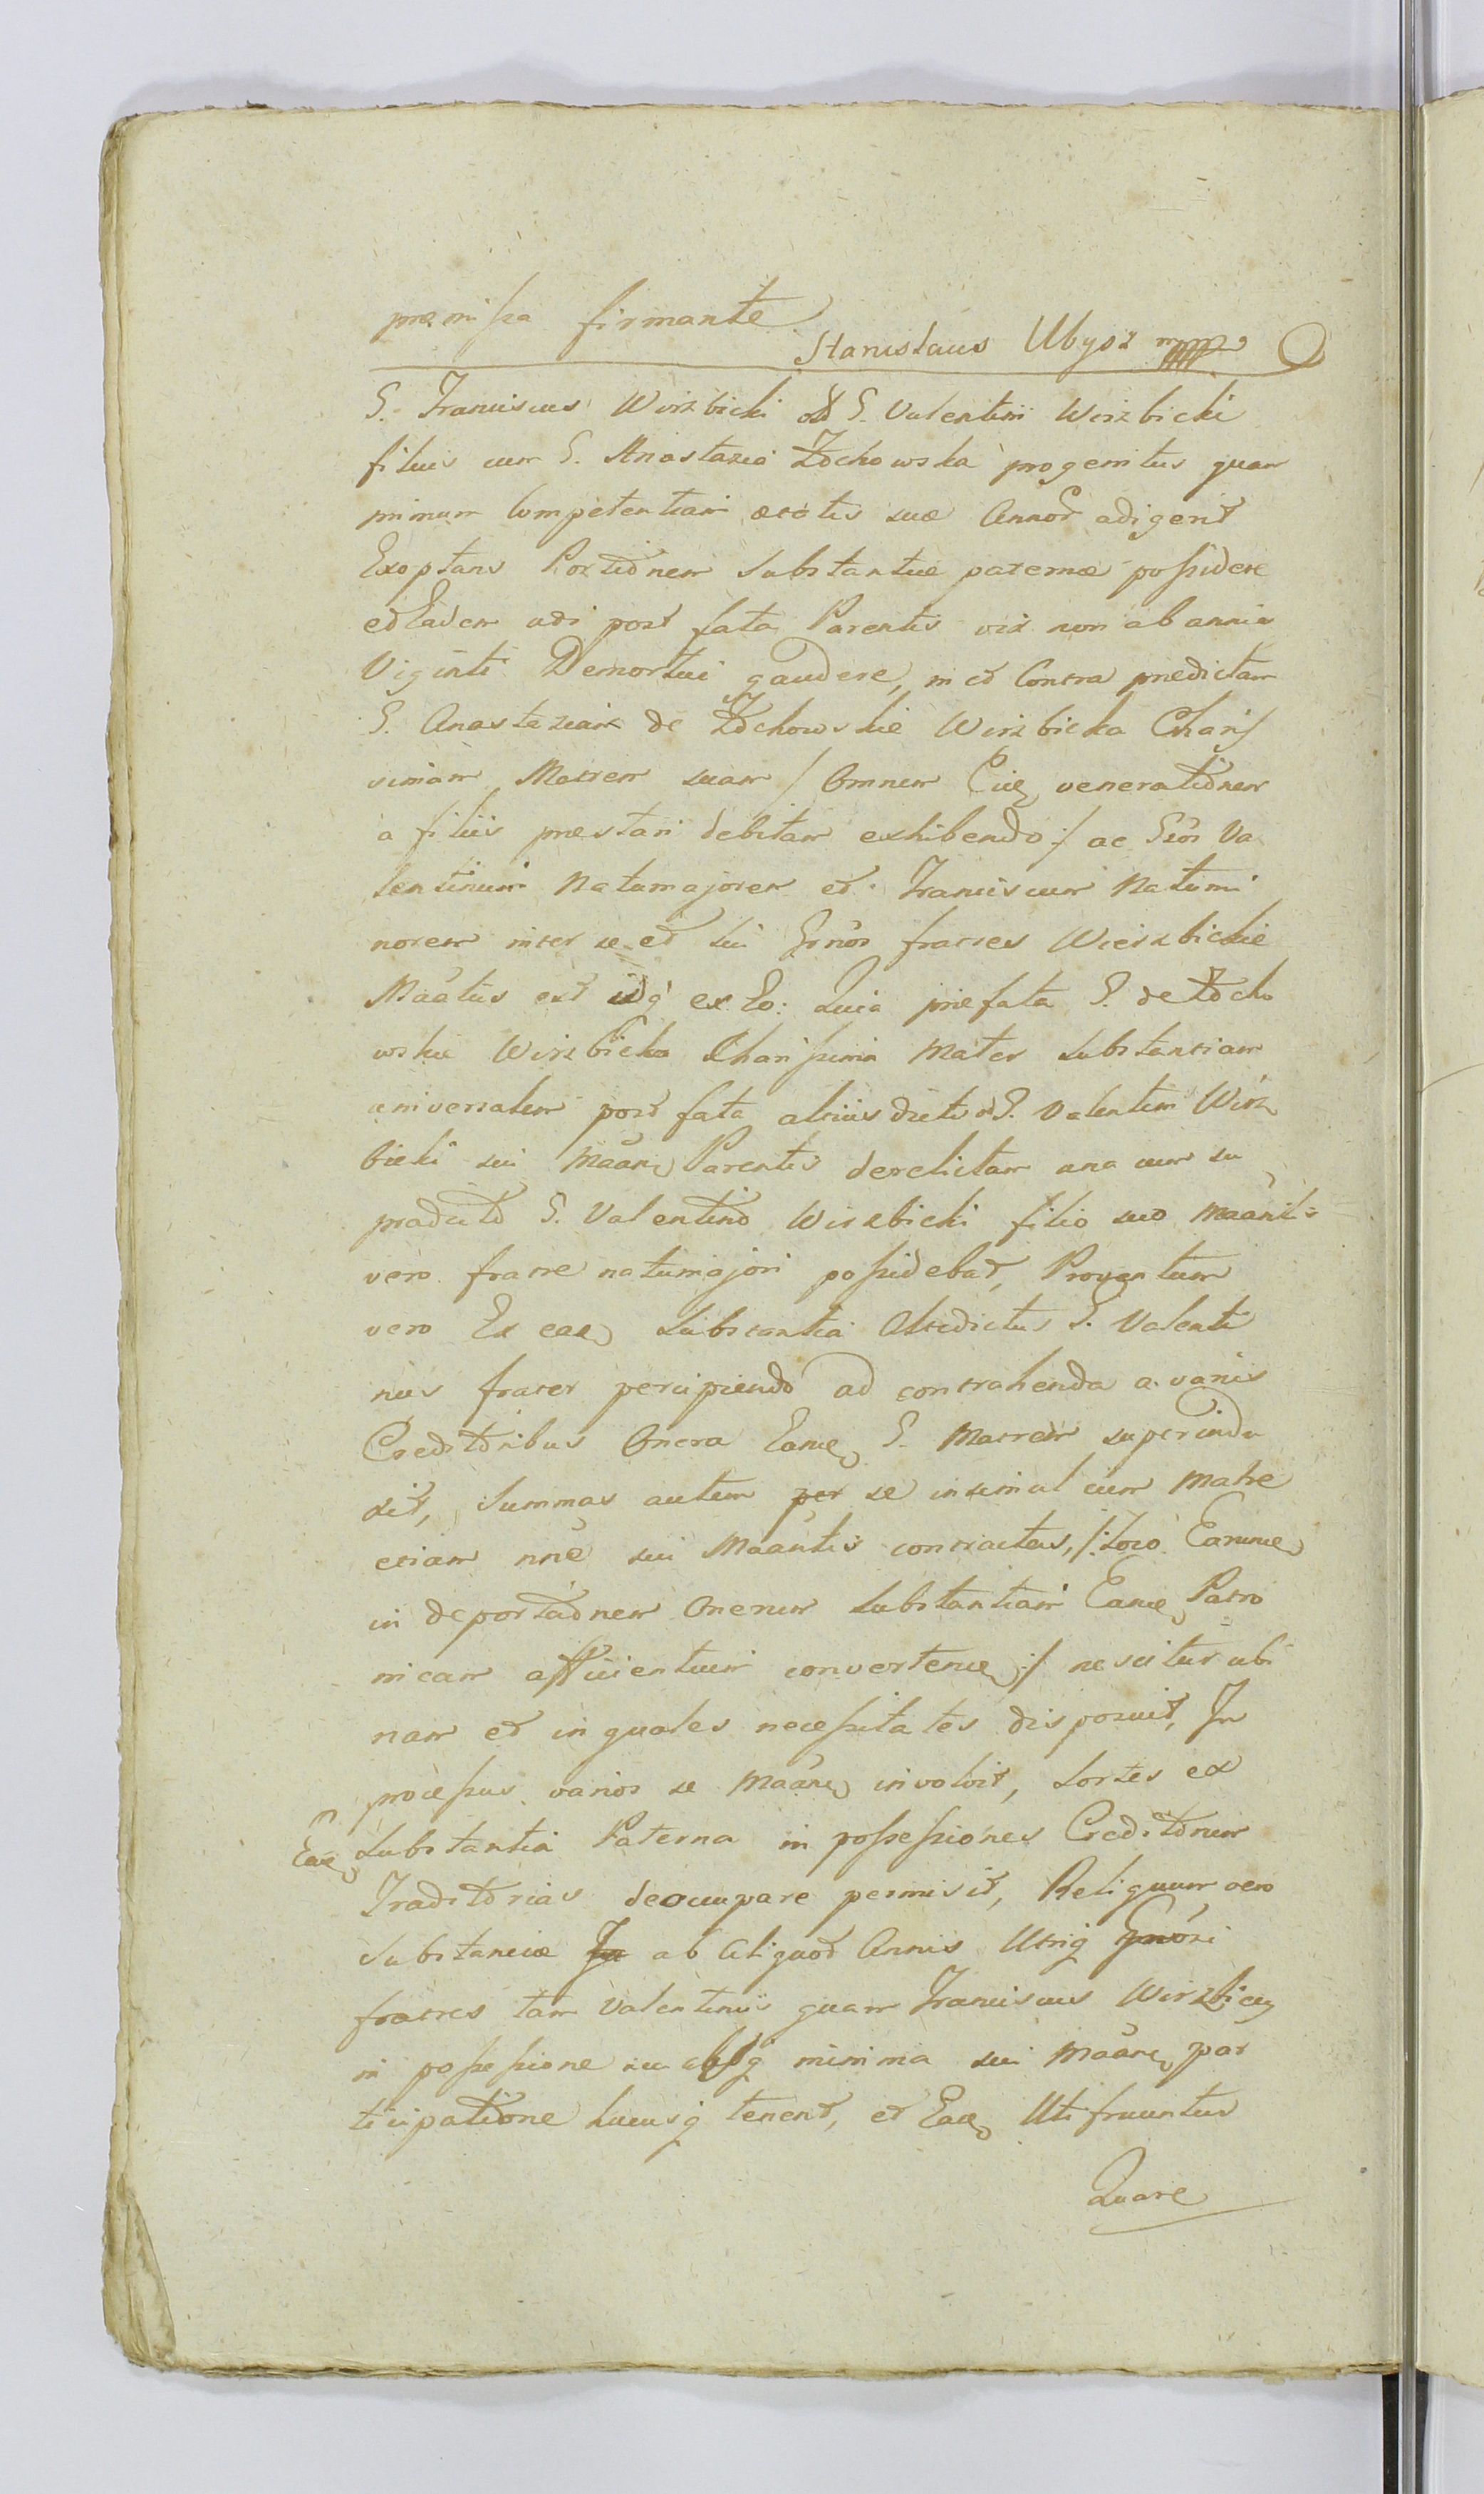 præmissa firmante
Stanislaus Ubysz mpp
G. Franciscus Wirzbicki olt G. Valentini Wirzbicki
filius cum G. Anastazia Żochowska progenitus quam
primum Competentiam ætatis suæ Annor adigerit
Exoptans Portionem Substantiæ paternæ possidere
et Eadem adi post fata Parentis vix non ab annis
Viginti Demortui gaudere, in et Contra prædictam
G. Anastaziam de Żochowskie Wirzbicka Charis
simam Matrem suam / Omnem Eiq venerationem
a filiis præstari debitam exhibendo :/ ac Gsos Va
lentinum Natumajorem et Franciscum Natumi
norem inter se et sui Grnos fratres Wierzbickie
Maatus est idq ex Eo: Quia præfata G. de Żocho
wskie Wirzbicka Charissima Mater Substantiam
universalem post fata altius dicti olt G. Valentini Wirz
bicki sui Maane Parentis derelictam una cum su
pradicto G. Valentino Wirzbicki filio suo Maantis
vero fratre natumajori possidebat, Proventum
vero Ex eaq Substantia Altedictus G. Valenti
nus frater percipiendo ad contrahenda a variis
Creditoribus Onera Eamq G. Matrem superindu
xit, Summas autem per se insimul cum Matre
etiam nne sui Maantis contractas, /: Loco Earumq
in deportationem Onerum Substantiam Eamq Patro
nicam afficientium convertenq :/ nescitur ubi
nam et in quales necessitates disposuit, In
processus varios se Maane involvit, Sortes ex
Eaq Substantia Paterna in possessiones Creditorum
Traditorias deocupare permisit, Reliquum vero
Substantiæ In ab Aliquot Annis Utriq Grnoni
fratres tam Valentinus quam Franciscus Wirzbiccy
in possessione sua absq minima sui Maane par
ticipatione hucusq tenent, et Eaq Utifruuntur
Quare